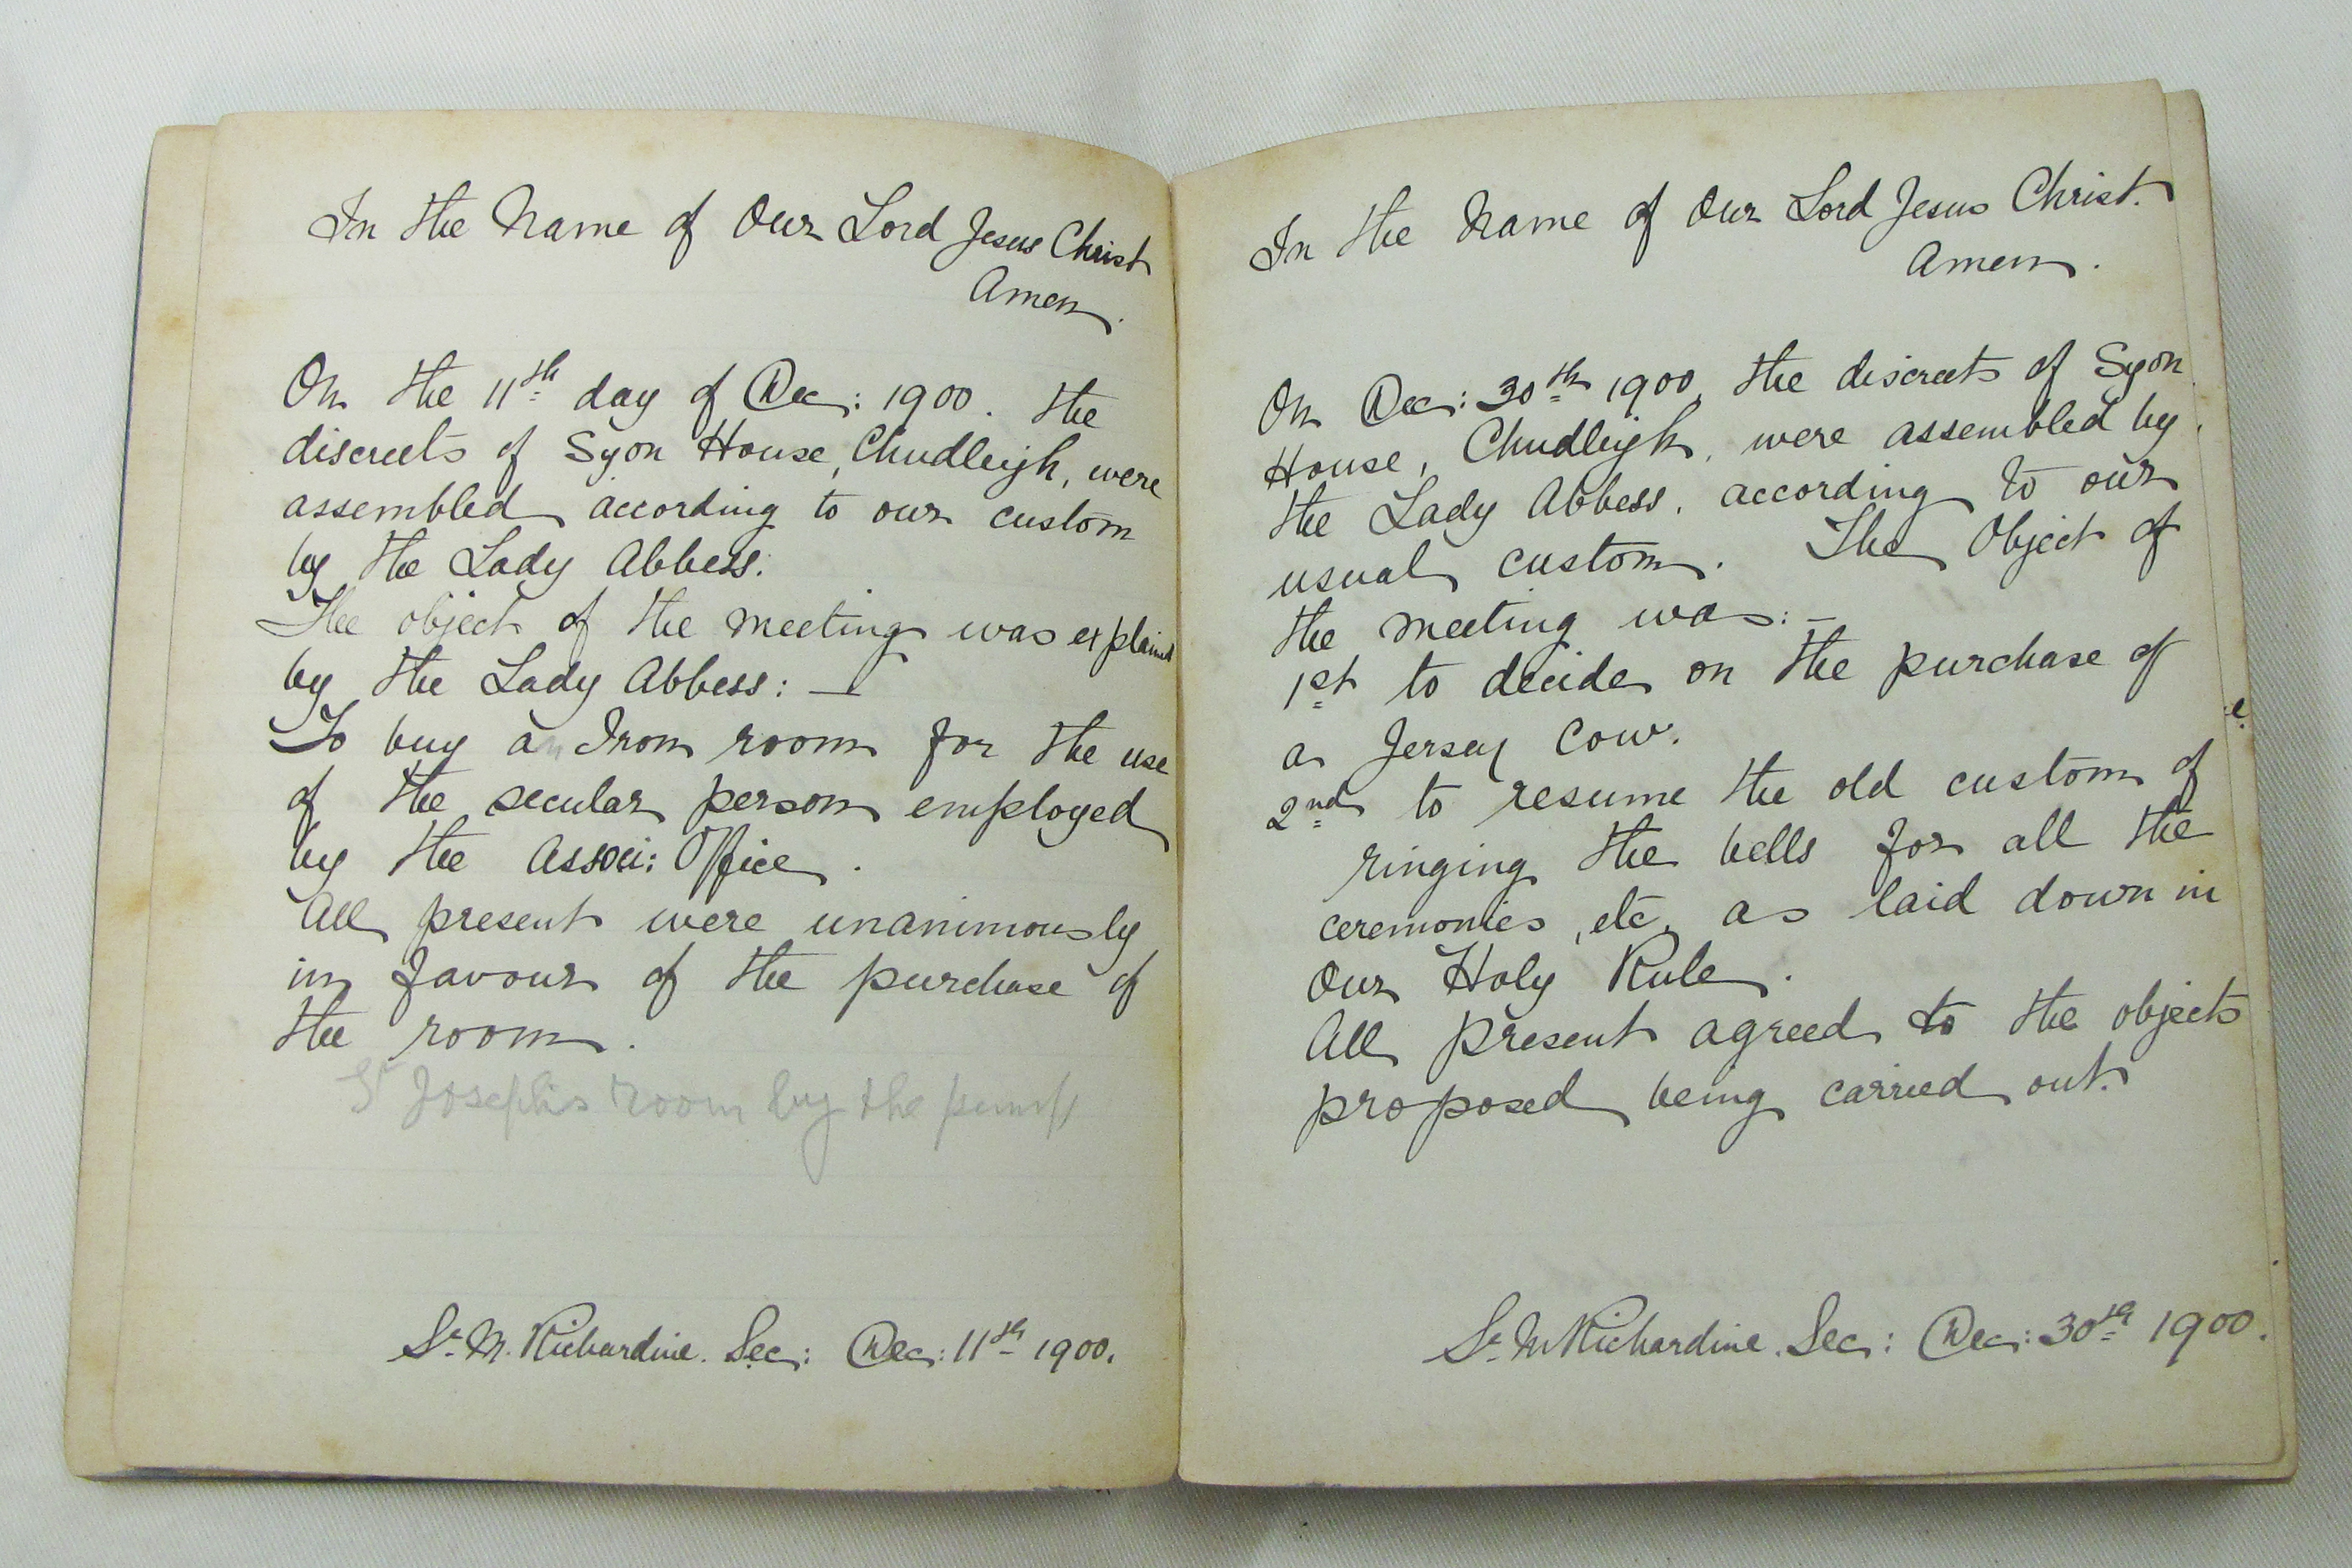 In the Name of Our Lord Jesus Christ
Amen.
On the 11th day of Dec: 1900. the
discreets of Syon House, Chudleigh, were
assembled according to our custom
by the Lady Abbess.
The object of the meeting was explained
by the Lady Abbess: —
To buy an Iron room for the use
of the secular person employed
by the Associ: Office.
All present were unanimously
in favour of the purchase of
the room.
St Joseph's room by the pump
Sr. M. Richardine. Sec: Dec: 11th 1900.
In the Name of Our Lord Jesus Christ.
Amen.
On Dec: 30th 1900, the discreets of Syon
House, Chudleigh, were assembled by
the Lady Abbess, according to our
usual custom. The Object of
the meeting was: –
1st to decide on the purchase of
a Jersey Cow.
2nd to resume the old custom of
ringing the bells for all the
ceremonies, etc, as laid down in
Our Holy Rule.
All present agreed to the objects
proposed being carried out.
Sr. M Richardine. Sec: Dec: 30th 1900.